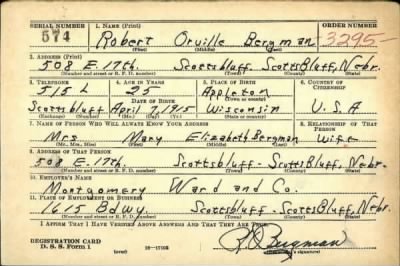 SERIAL NUMBER 1. NAME (Print) ORDER NUMBER
574 Robert Orville Bergman 3295
(First) (Middle) (Last)
2. ADDRESS (Print)
508 E. 17th. Scottsbluff. Scotts Bluff, Nebr.
(Number and street or R. F. D. number) (Town) (County) (State)
3. TELEPHONE 4. AGE IN YEARS 5. PLACE OF BIRTH 6. COUNTRY OF CITIZENSHIP
515 L 25 Appleton
DATE OF BIRTH (Town or county)
Scottsbluff April 7, 1915 Wisconsin U.S.A
(Exchange) (Number) (Mo.) (Day) (Yr.) (State or country)
7. NAME OF PERSON WHO WILL ALWAYS KNOW YOUR ADDRESS 8. RELATIONSHIP OF THAT PERSON
Mrs Mary Elizabeth Bergman Wife
(Mr., Mrs., Miss) (First) (Middle) (Last)
9. ADDRESS OF THAT PERSON
508 E. 17th. Scottsbluff - Scotts Bluff, Nebr.
(Number and street or R. F. D. number) (Town) (County) (State)
10. EMPLOYER'S NAME
Montgomery Ward and Co.
11. PLACE OF EMPLOYMENT OR BUSINESS
1615 Bdwy. Scottsbluff - Scotts Bluff, Nebr.
(Number and street or R. F. D. number) (Town) (County) (State)
I AFFIRM THAT I HAVE VERIFIED ABOVE ANSWERS AND THAT THEY ARE TRUE.
REGISTRATION CARD
D. S. S. Form 1 (over) 16-17105 (Registrant's signature)
R O Bergman